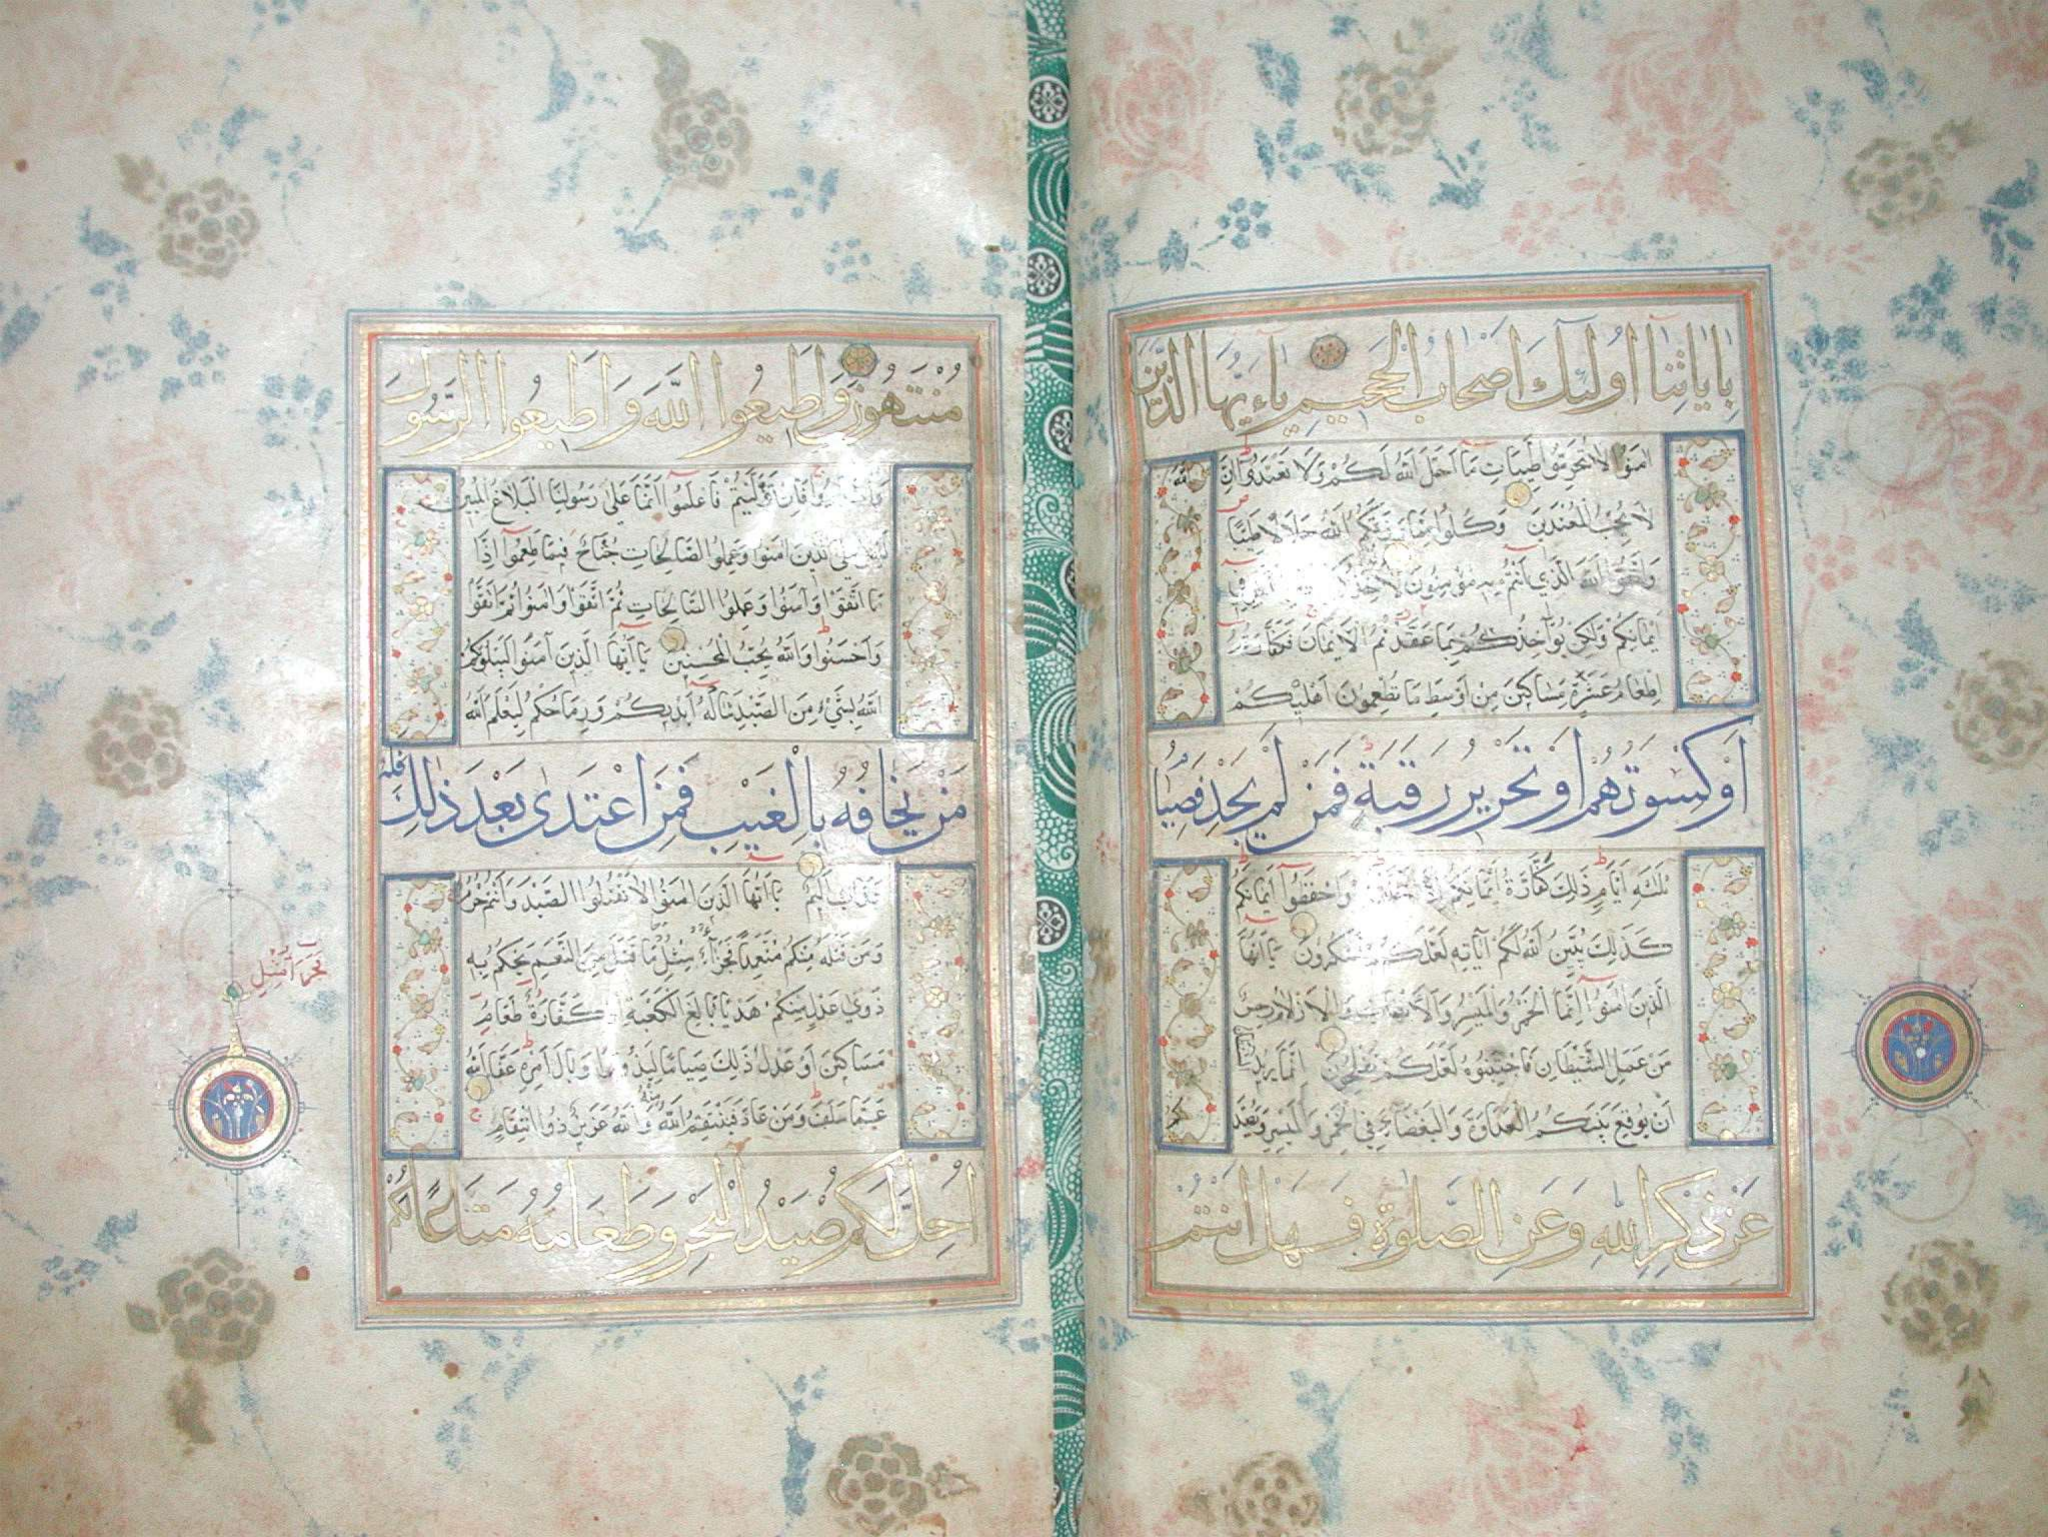 بِاٰيَاتِنَا اُولٰئِكَ اَصْحَابُ الْجَحِيمِ يَاءَيُّهَا الَّذِينَ
اٰمَنُوا لَا تُحَرِّمُوا طَيِّبَاتِ مَا اَحَلَّ اللّٰهُ لَكُمْ وَلَا تَعْتَدُوا اِنَّ اللّٰهَ
لَا يُحِبُّ الْمُعْتَدِينَ وَكُلُوا مِمَّا رَزَقَكُمُ اللّٰهُ حَلَالًا طَيِّبًا
وَاتَّقُوا اللّٰهَ الَّذِي اَنْتُمْ بِهِ مُؤْمِنُونَ لَا
اَيْمَانِكُمْ وَلٰكِنْ يُؤَاخِذُكُمْ بِمَا عَقَّدْتُمُ الْاَيْمَانَ فَكَفَّارَتُهُ
اِطْعَامُ عَشَرَةِ مَسَاكِينَ مِنْ اَوْسَطِ مَا تُطْعِمُونَ اَهْلِيكُمْ
اَوْ كِسْوَتُهُمْ اَوْ تَحْرِيرُ رَقَبَةٍ فَمَنْ لَمْ يَجِدْ فَصِيَامُ
ثَلٰثَةِ اَيَّامٍ ذٰلِكَ كَفَّارَةُ اَيْمَانِكُمْ اِذَا وَاحْفَظُوا اَيْمَانَكُمْ
كَذٰلِكَ يُبَيِّنُ اللّٰهُ لَكُمْ اٰيَاتِهِ لَعَلَّكُمْ تَشْكُرُونَ يَا اَيُّهَا
الَّذِينَ اٰمَنُوا اِنَّمَا الْخَمْرُ وَالْمَيْسِرُ وَالْاَنْصَابُ وَالْاَزْلَامُ رِجْسٌ
مِنْ عَمَلِ الشَّيْطَانِ فَاجْتَنِبُوهُ لَعَلَّكُمْ تُفْلِحُونَ اِنَّمَا يُرِيدُ الشَّيْطَانُ
اَنْ يُوقِعَ بَيْنَكُمُ الْعَدَاوَةَ وَالْبَغْضَاءَ فِي الْخَمْرِ وَالْمَيْسِرِ وَيَصُدَّكُمْ
عَنْ ذِكْرِ اللّٰهِ وَعَنِ الصَّلٰوةِ فَهَلْ اَنْتُمْ
مُنْتَهُونَ وَاَطِيعُوا اللّٰهَ وَاَطِيعُوا الرَّسُولَ
وَاحْذَرُوا فَاِنْ تَوَلَّيْتُمْ فَاعْلَمُوا اَنَّمَا عَلٰى رَسُولِنَا الْبَلَاغُ الْمُبِينُ
لَيْسَ عَلَى الَّذِينَ اٰمَنُوا وَعَمِلُوا الصَّالِحَاتِ جُنَاحٌ فِيمَا طَعِمُوا اِذَا
مَا اتَّقَوْا وَاٰمَنُوا وَعَمِلُوا الصَّالِحَاتِ ثُمَّ اتَّقَوْا وَاٰمَنُوا ثُمَّ اتَّقَوْا
وَاَحْسَنُوا وَاللّٰهُ يُحِبُّ الْمُحْسِنِينَ يَا اَيُّهَا الَّذِينَ اٰمَنُوا لَيَبْلُوَنَّكُمُ
اللّٰهُ بِشَيْءٍ مِنَ الصَّيْدِ تَنَالُهُ اَيْدِيكُمْ وَرِمَاحُكُمْ لِيَعْلَمَ اللّٰهُ
مَنْ يَخَافُهُ بِالْغَيْبِ فَمَنِ اعْتَدٰى بَعْدَ ذٰلِكَ فَلَهُ
عَذَابٌ اَلِيمٌ يَا اَيُّهَا الَّذِينَ اٰمَنُوا لَا تَقْتُلُوا الصَّيْدَ وَاَنْتُمْ حُرُمٌ
وَمَنْ قَتَلَهُ مِنْكُمْ مُتَعَمِّدًا فَجَزَاءٌ مِثْلُ مَا قَتَلَ مِنَ النَّعَمِ يَحْكُمُ بِهِ
ذَوَى عَدْلٍ مِنْكُمْ هَدْيًا بَالِغَ الْكَعْبَةِ اَوْ كَفَّارَةٌ طَعَامُ
مَسَاكِينَ اَوْ عَدْلُ ذٰلِكَ صِيَامًا لِيَذُوقَ وَبَالَ اَمْرِهِ عَفَا اللّٰهُ
عَمَّا سَلَفَ وَمَنْ عَادَ فَيَنْتَقِمُ اللّٰهُ مِنْهُ وَاللّٰهُ عَزِيزٌ ذُو انْتِقَامٍ
اُحِلَّ لَكُمْ صَيْدُ الْبَحْرِ وَطَعَامُهُ مَتَاعًا لَكُمْ